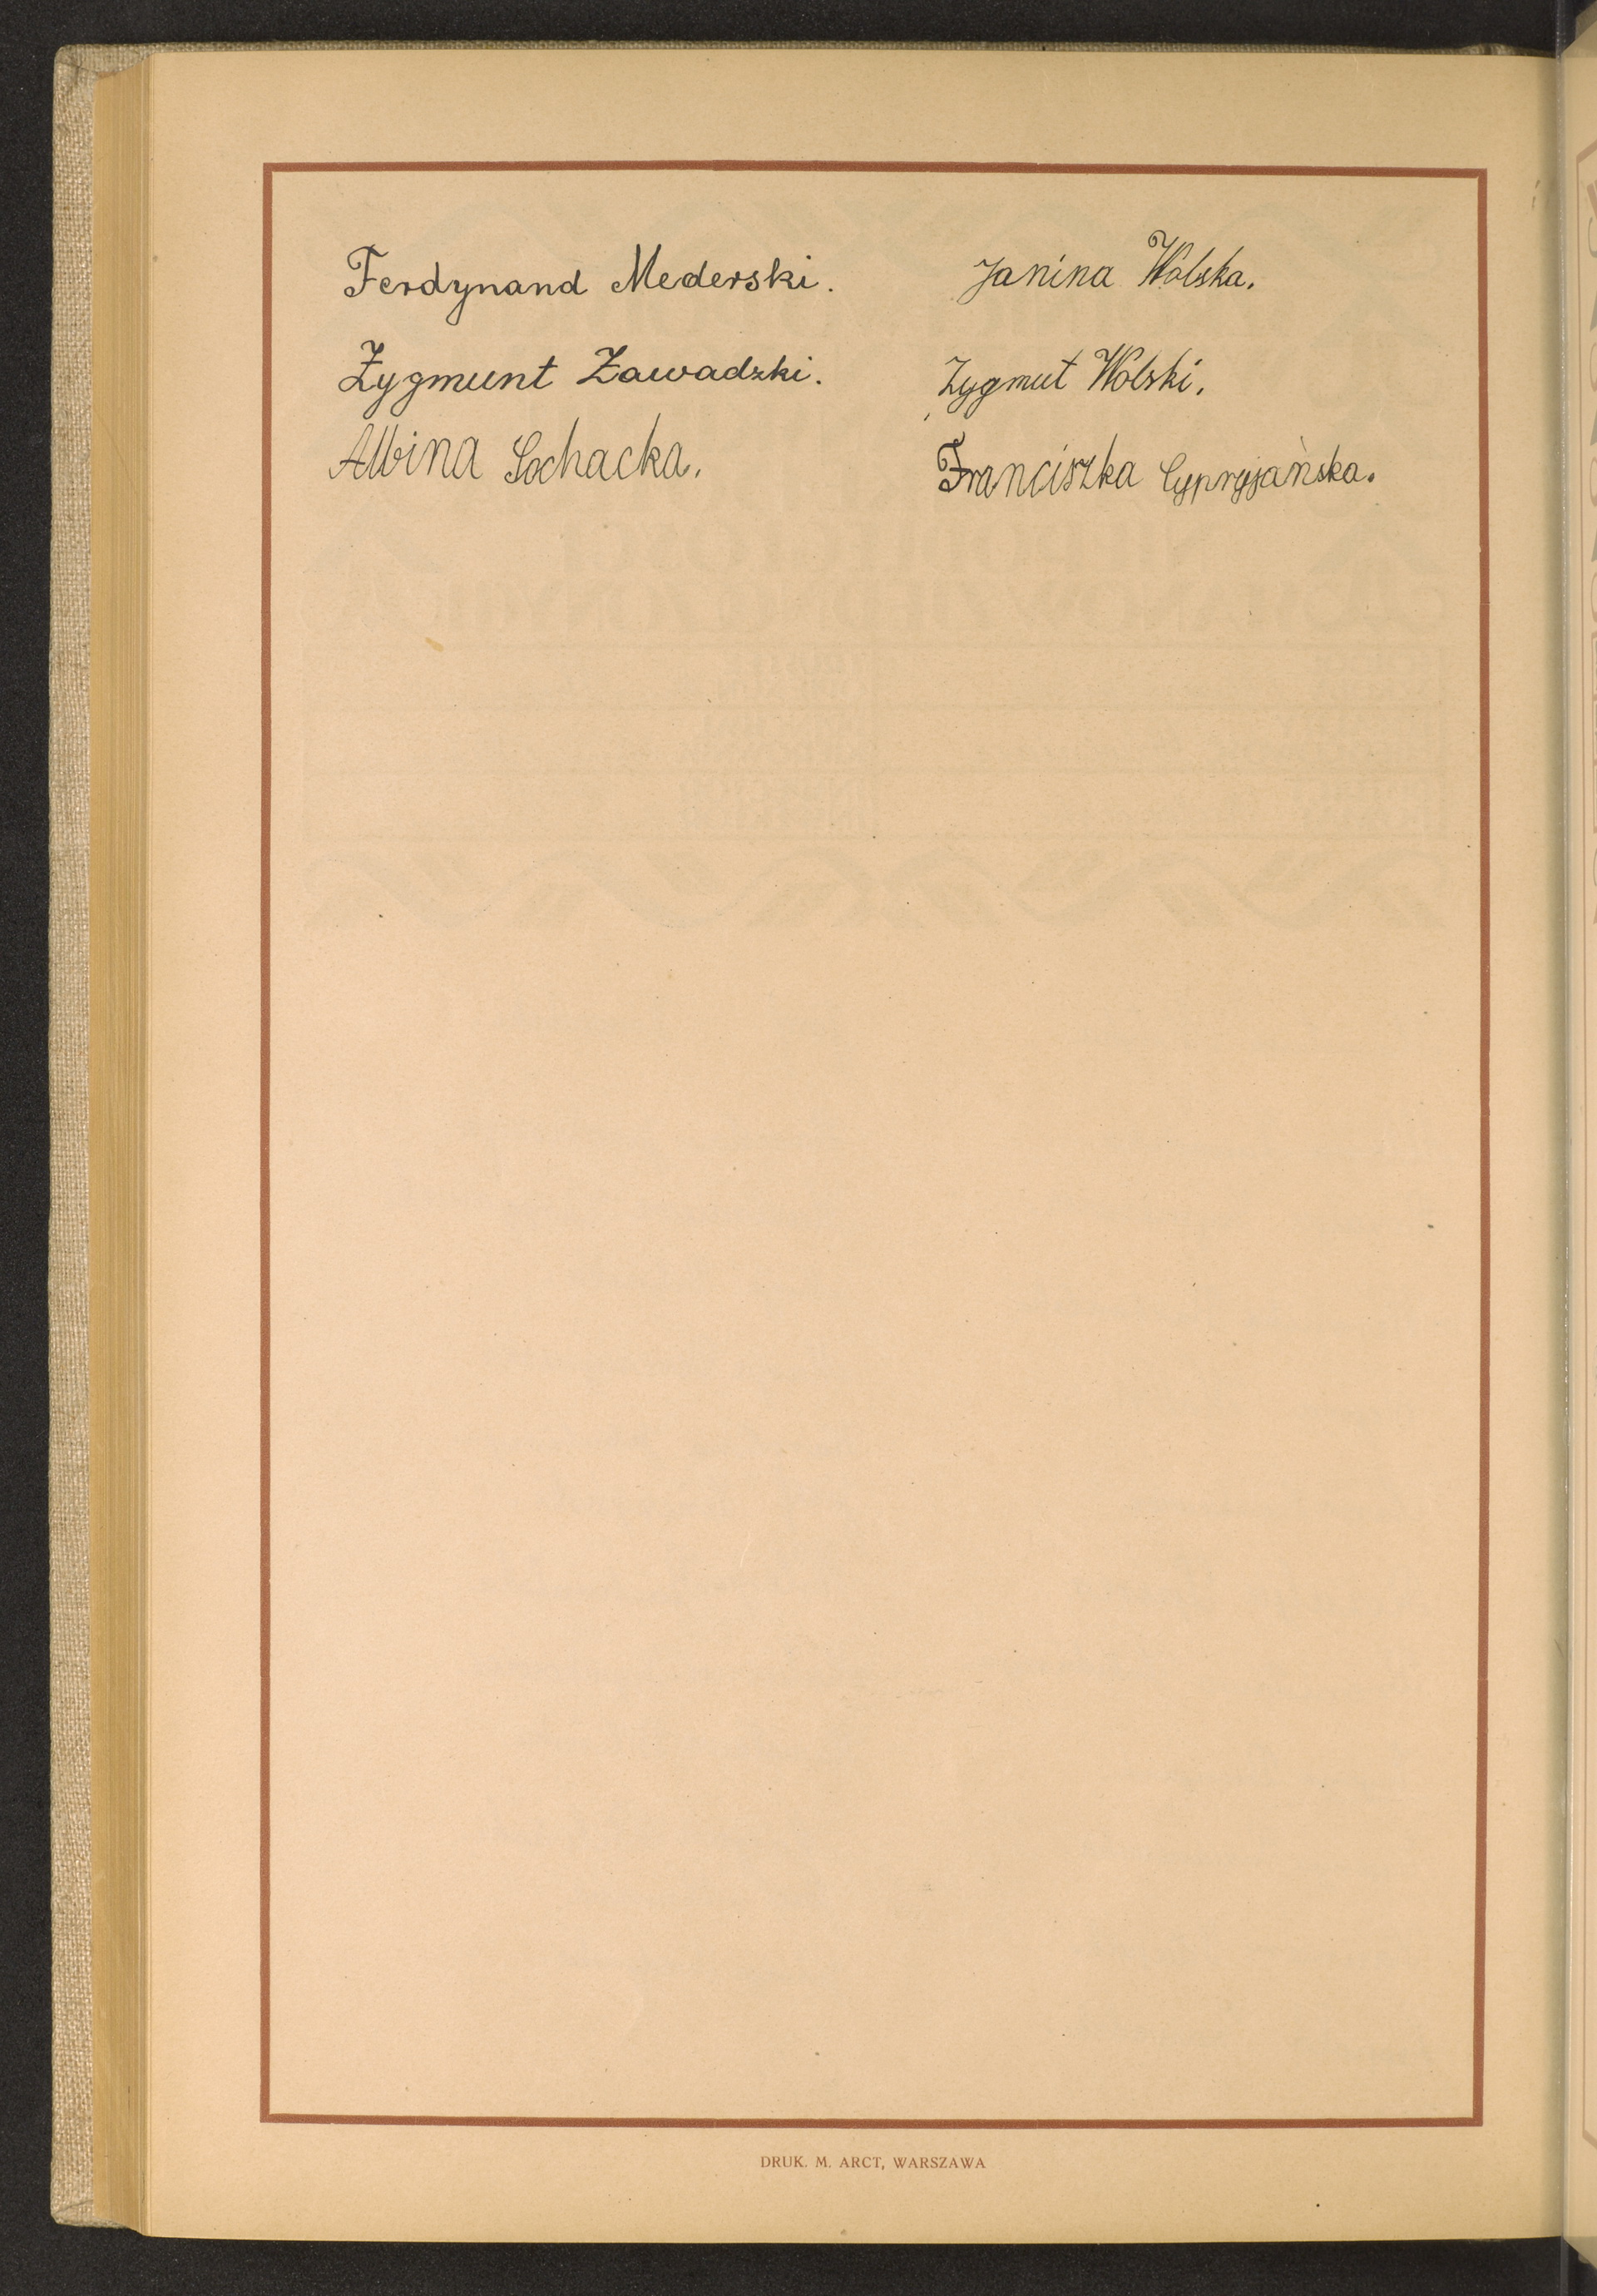 Ferdynand Mederski.
Zygmunt Zawadzki.
Albina Sochacka.
Janina Wolska.
Zygmut Wolski.
Franciszka Cypryjańska.
DRUK. M. ARCT, WARSZAWA